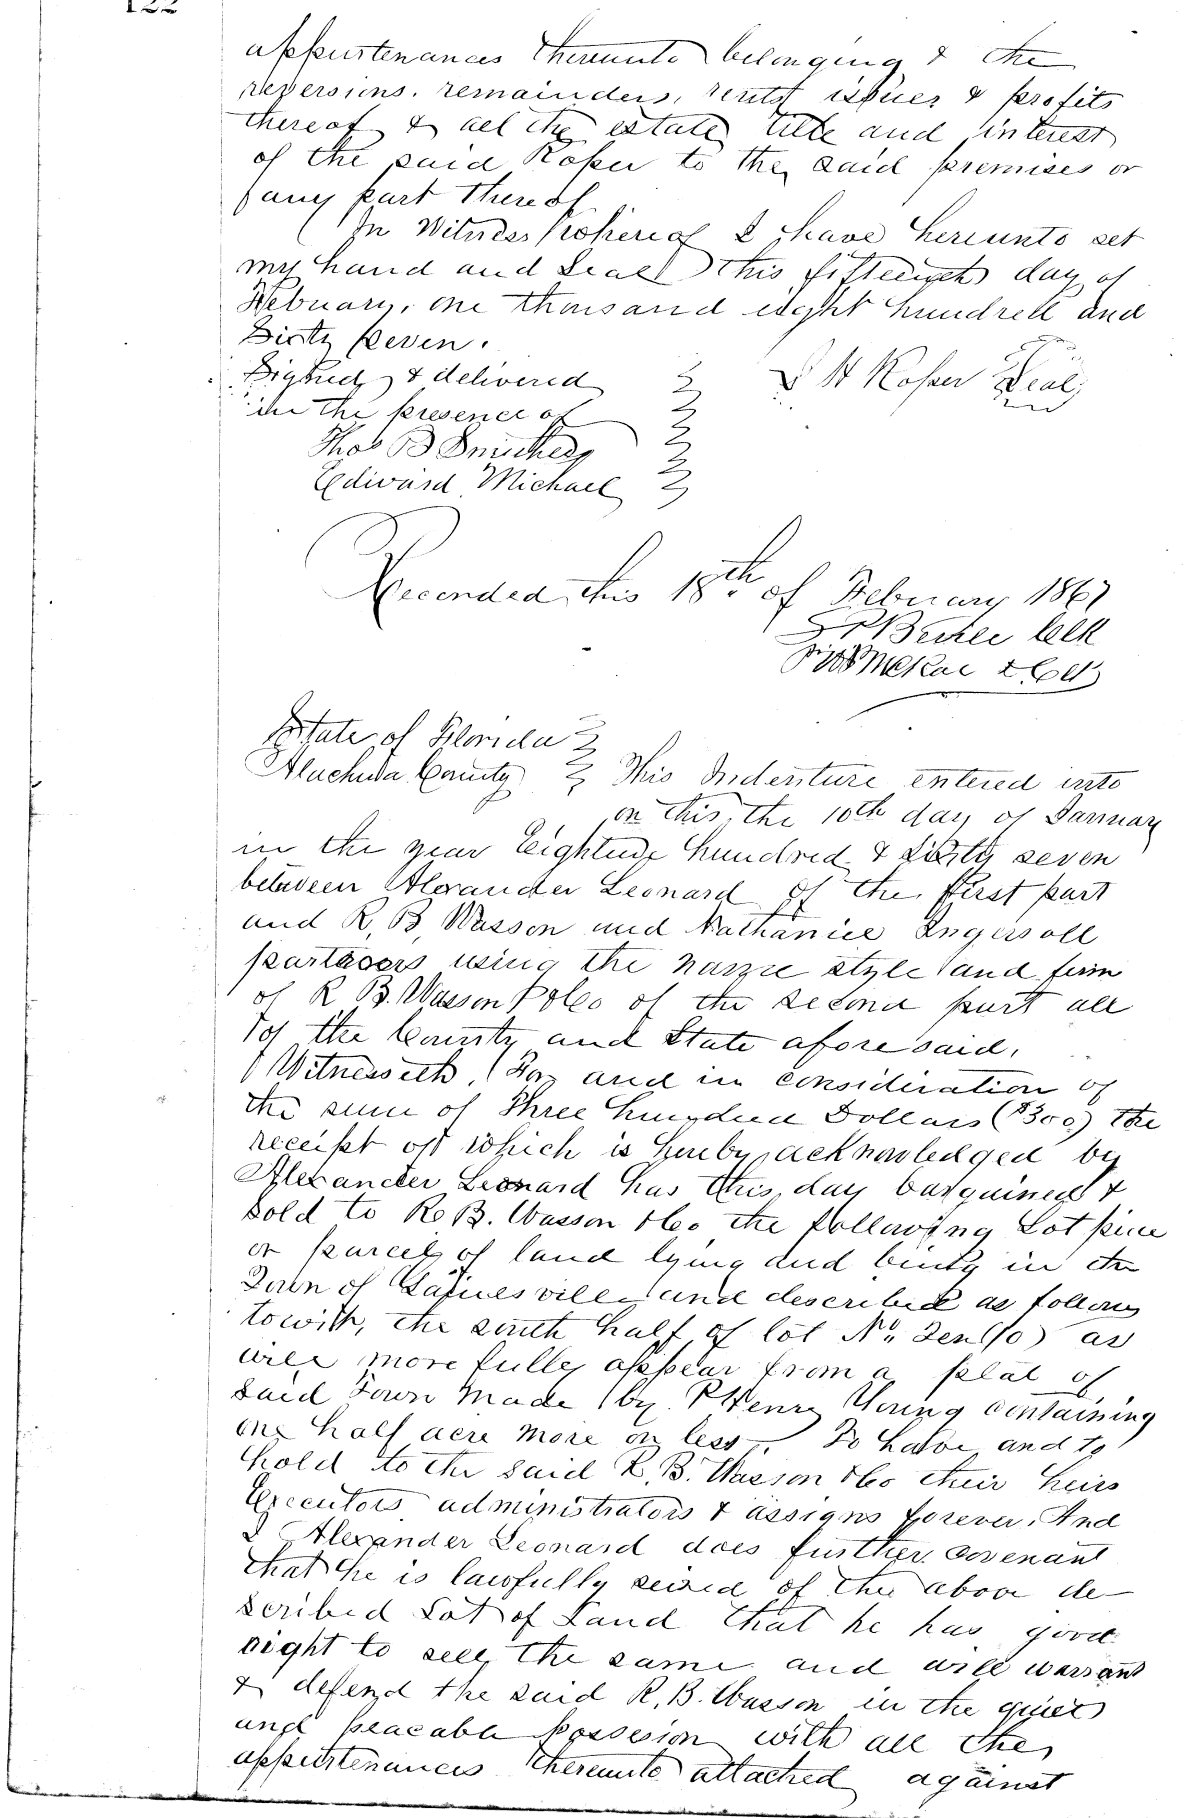 122
appurtenances thereunto belonging & the
reversions, remainders, rents issues & profits
thereof & all the estate title and interest
of the said Roper to the said premises or
any part thereof
In Witness whereof I have hereunto set
my hand and Seal this fifteenth day of
Febuary, one thousand eight hundred and
Sixty seven.
Signed & delivered S H Roper Seal
in the presence of
Thos B Smithers
Edward Michael
Recorded this 18th of February 1867
Clk
State of Florida
Alachua County This Indenture entered into
on this the 10th day of January
in the year Eighteen hundred & Sixty seven
between Alexander Leonard of the first part
and R. B. Wasson and Nathaniel Ingersoll
partners using the name style and firm
of R. B. Wasson & Co of the second part all
of the County and State aforesaid,
Witnesseth, For and in consideration of
the sum of Three hundred Dollars ($300) the
receipt of which is hereby acknowledged by
Alexander Leonard has this day bargained &
sold to R. B. Wasson & Co the following Lot piece
or parcel of land lying and being in the
Town of Gainesville and described as follows
towit, the south half of lot No. Ten (10) as
will more fully appear from a plat of
said Town made by Henry Young containing
one half acre more or less. To have and to
hold to the said R. B. Wasson & Co their heirs
Executors administrators & assigns forever. And
I Alexander Leonard does further covenant
that he is lawfully seized of the above de
scribed Lot of Land that he has good
right to sell the same and will warrant
& defend the said R. B. Wasson in the quiet
and peacable possesion with all the
appurtenances thereunto attached against